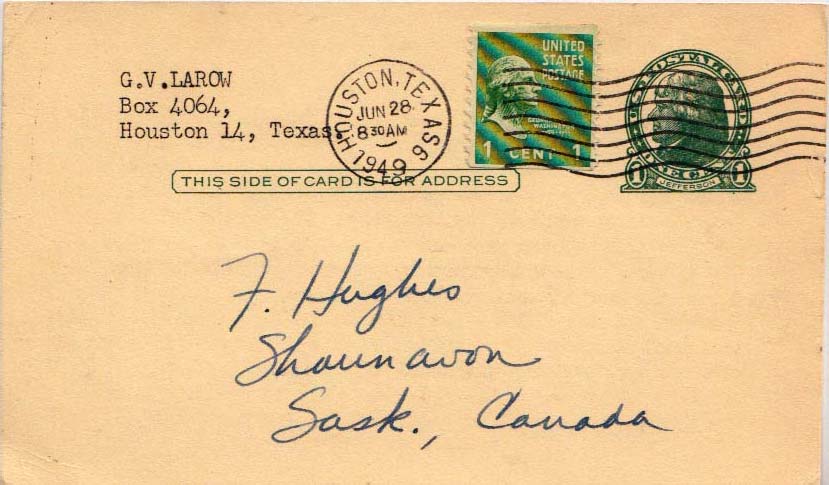 G.V.LAROW
Box 4064,
Houston 14, Texas.
HOUSTON, TEXAS 6
JUN 28
8 30 AM
1949
UNITED
STATES
POSTAGE
GEORGE
WASHINGTON
1 CENT 1
U.S. POSTAL CARD
1 ONE CENT 1
JEFFERSON
THIS SIDE OF CARD IS FOR ADDRESS
F. Hughes
Shaunavon
Sask., Canada